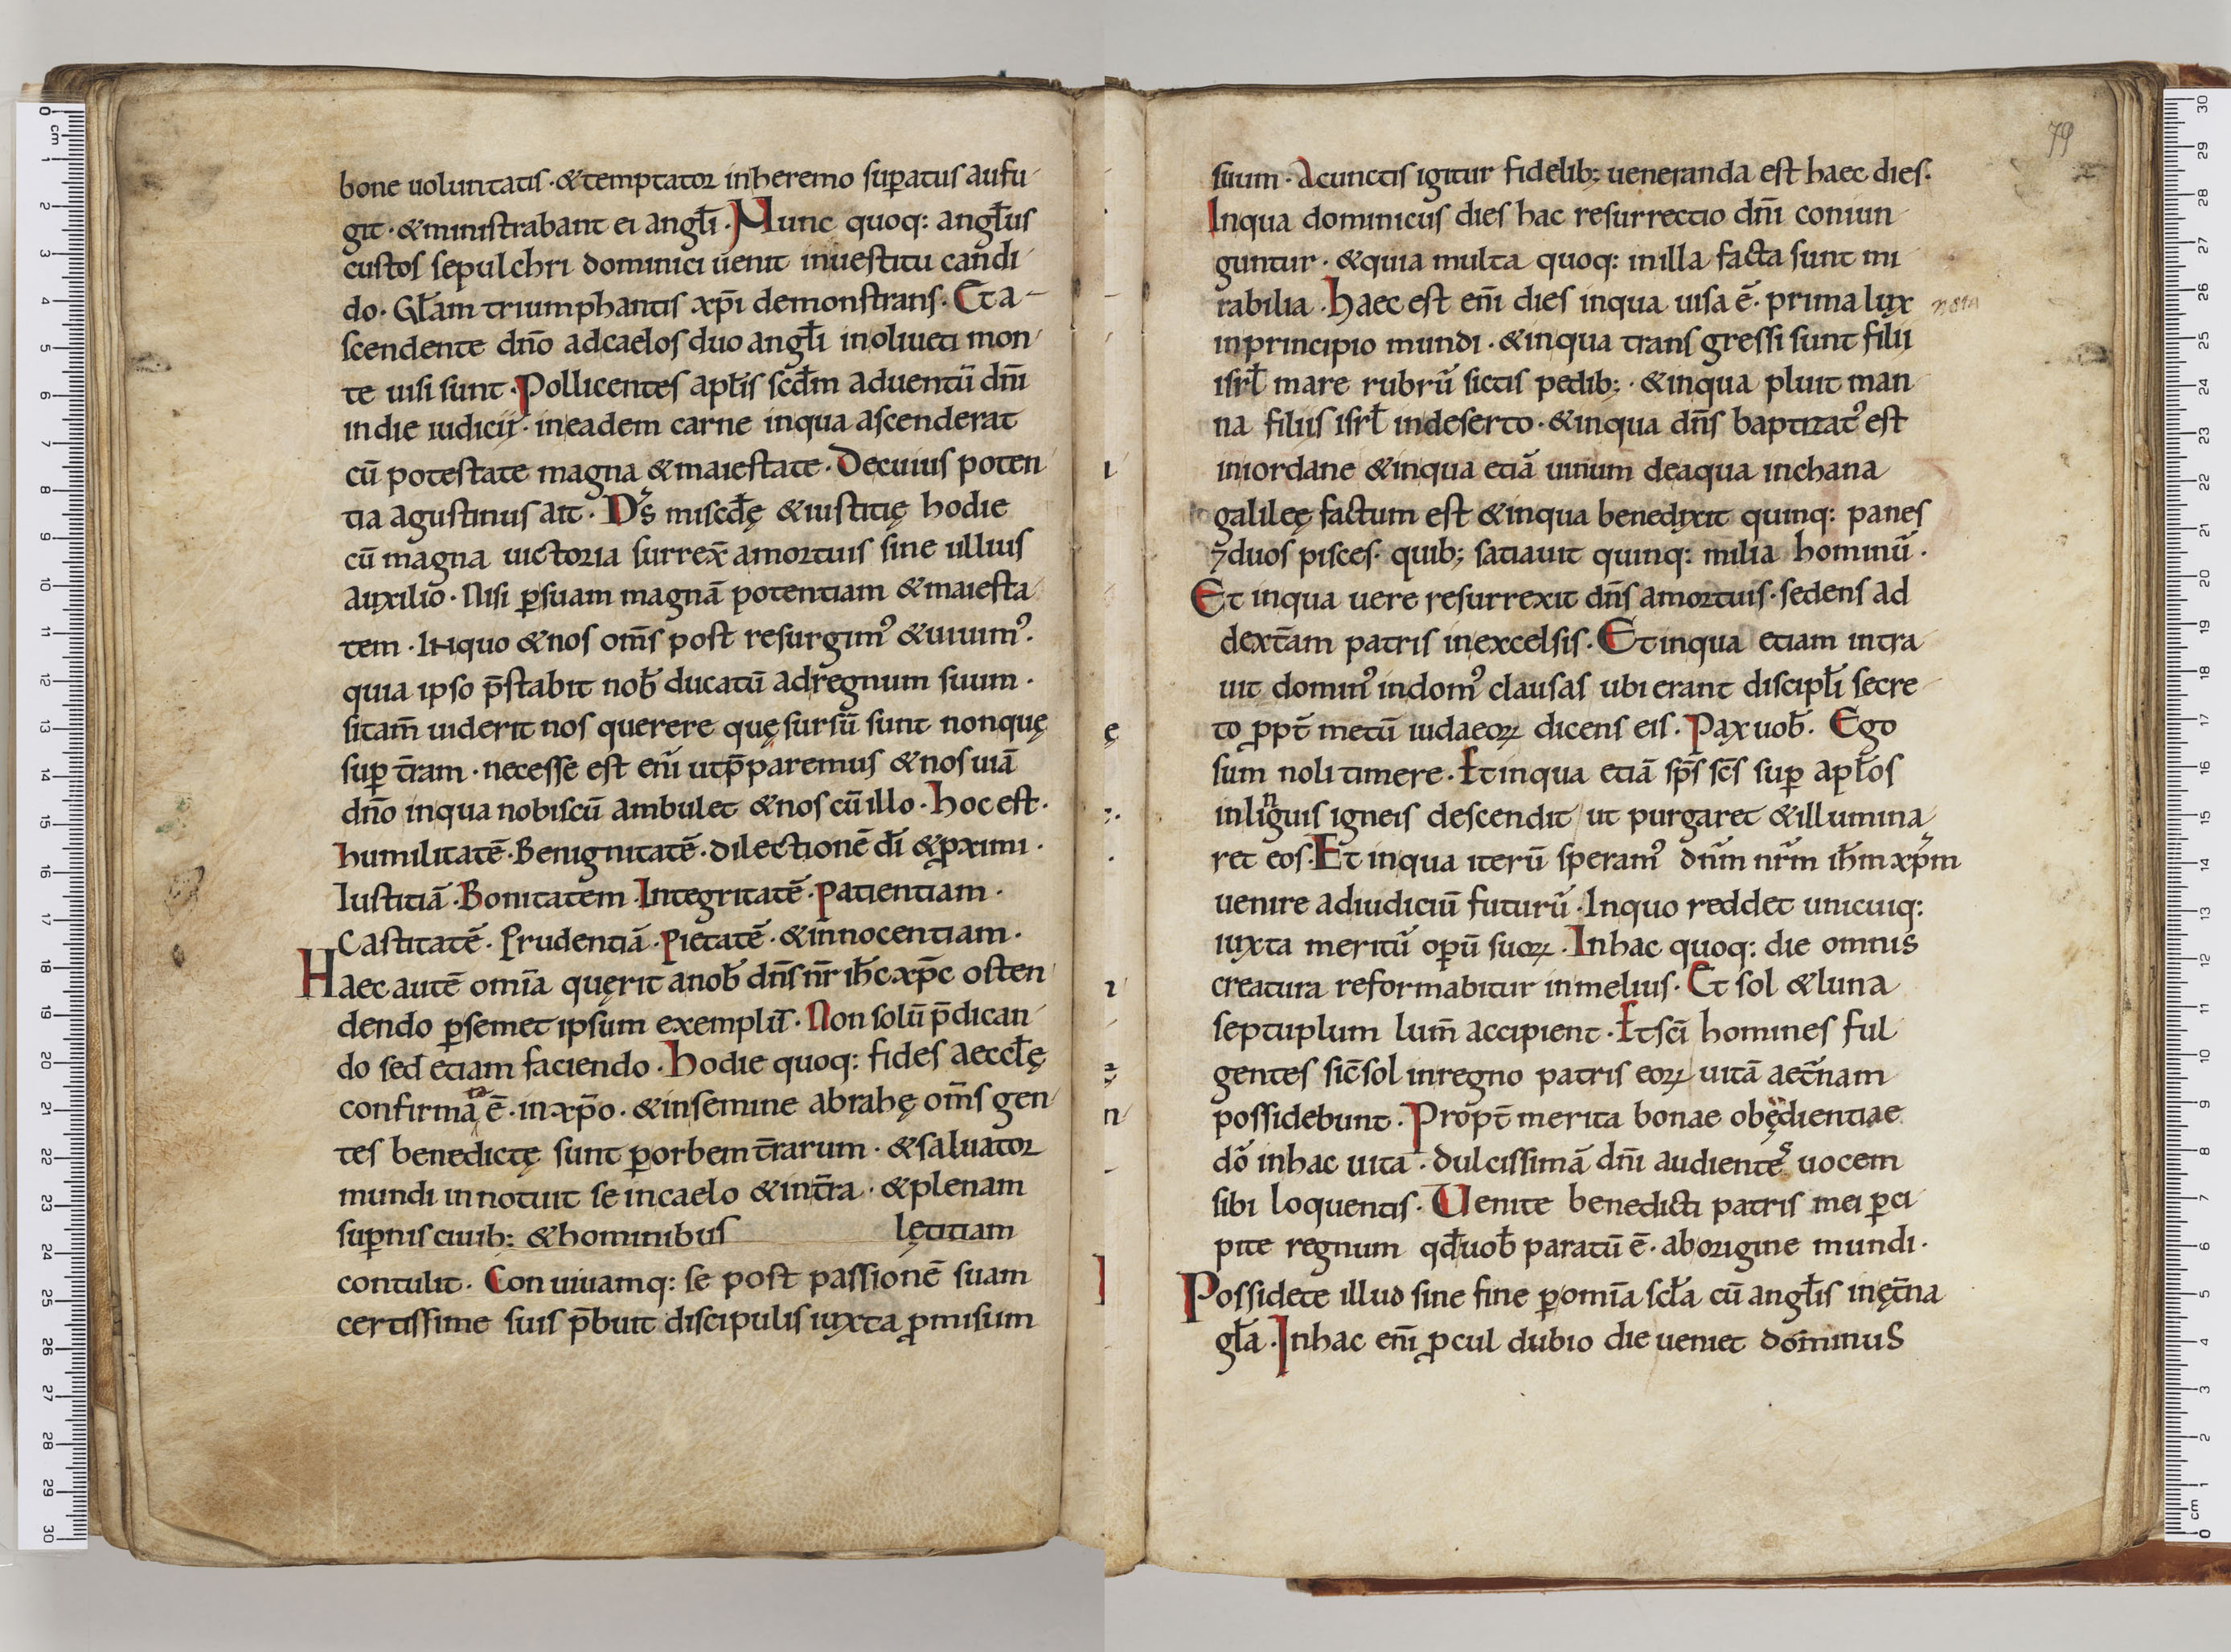 bone uoluntatis · & temptator inheremo sup̄atus aufu
git · & ministrabant ei angl̄i · Nunc quoq: angl̄us
custos sepulchri dominici uenit inuestitu candi
do · Gl̄am triumphantis xp̄i demonstrans · Et a
scendente dn̄o adcaelos duo angl̄i inoliueti mon
te uisi sunt · Pollicentes apl̄is scd̄m aduentū dn̄i
indie iudicii · ineadem carne inqua ascenderat
cū potestate magna & maiestate · Decuius poten
tia agustinus ait · Ds̄ miscd̄ę & iustitię hodie
cū magna uictoria surrex̄ amortuis sine ullius
auxilio · Nisi ꝑsuam magnā potentiam & maiesta
tem · INquo & nos om̄s post resurgim᾽ & uiuim᾽ ·
quia ipso p̄stabit nob̄ ducatū adregnum suum ·
sitam̄ uiderit nos querere quę sursū sunt nonquę
suꝑ t̄ram · necesse est eni̅ utp̄paremus & nos uiā
dn̄o inqua nobiscū ambulet & nos cū illo · hoc est ·
humilitatē · Benignitatē · dilectionē dī & ꝓximi ·
Iustitiā · Bonitatem · Integritatē · Patientiam ·
Castitatē · Prudentiā · Pietatē · & innocentiam ·
Haec autē omīa quęrit anob̄ dn̄s nr̄ ih̄c xp̄c osten
dendo ꝑsemet ipsum exemplū · Non solū p̄dican
do sed etiam faciendo · hodie quoq: fides aeccl̄ę
confirmata ē · inxp̄o · & insemine abrahę om̄s gen
tes benedictę sunt ꝑorbem t̄rarum · & saluator
mundi innotuit se incaelo & int̄ra · & plenam
suꝑnis ciuib: & hominibus lętitiam
contulit · Con uiuamq: se post passionē suam
certissime suis p̄buit discipulis iuxta ꝓmisum
79
suum · Acunctis igitur fidelib; ueneranda est haec dies ·
Inqua dominicus dies hac resurrectio dn̄i coniun
guntur · & quia multa quoq: inilla facta sunt mi
rabilia · haec est enī dies inqua uisa ē · prima lux
nota
inprincipio mundi · & inqua trans gressi sunt filii
isrl̄ mare rubrū siccis pedib; · & inqua pluit man
na filiis isrl̄ indeserto · & inqua dn̄s baptizat᾽ est
iniordane & inqua etiā uinum deaqua inchana
galileę factum est & inqua benedixit quinq: panes
⁊ duos pisces · quib; satiauit quinq: milia hominū ·
Et inqua uere resurrexit dn̄s amortuis · sedens ad
dext̄am patris inexcelsis · Et inqua etiam intra
uit domin᾽ indom᾽ clausas ubi erant discipl̄i secre
to ꝓpt̄ metū iudaeoꝝ dicens eis · Pax uob̄ · Ego
sum noli timere · Et inqua etiā sp̄s sc̄s suꝑ apl̄os
inlinguis igneis descendit ut purgaret & illumina
ret eos · Et inqua iterū speram᾽ dn̄m nr̄m ih̄m xp̄m
uenire adiudiciū futurū · Inquo reddet unicuiq:
iuxta meritū oꝑū suoꝝ · Inhac quoq: die omnis
creatura reformabitur inmelius · Et sol & luna
septuplum lum̄ accipient · Et sci̅ homines ful
gentes sic̄ sol inregno patris eoꝝ uitā aet̄nam
possidebunt · Propt̄ merita bonae obędientiae
dō inhac uita · dulcissimā dn̄i audientes uocem
sibi loquentis · Uenite benedicti patris mei ꝑci
pite regnum qd̄ uob̄ paratū ē · aborigine mundi ·
Possidete illud sine fine ꝑomīa scl̄a cū angl̄is inęt̄na
gl̄a · Inhac enī ꝓcul dubio die ueniet dominus